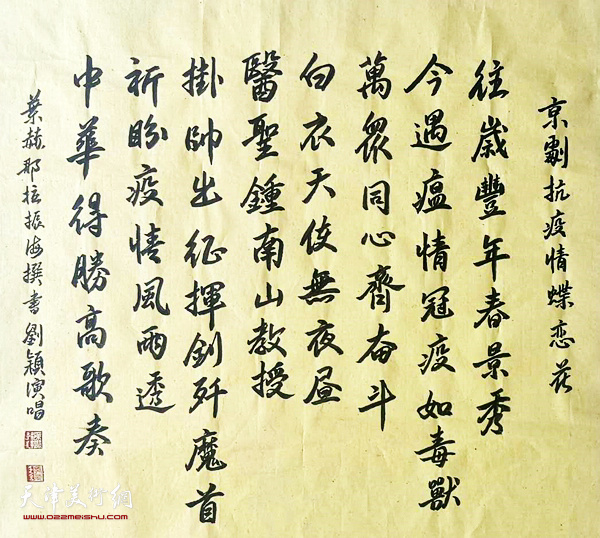 京劇抗疫情蝶恋花
往歲豐年春景秀
今遇瘟情冠疫如毒獸
萬眾同心齊奋斗
白衣天使無夜昼
醫聖鍾南山教授
掛帥出征揮劍歼魔首
祈盼疫情風雨透
中華得勝高歌奏
葉赫那拉振海撰書劉穎演唱
天津美術網
www.022meishu.com